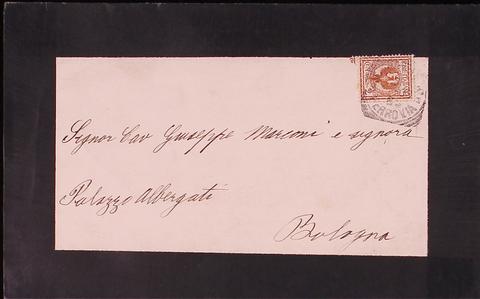 Signor Cav Giuseppe Marconi e signora
Palazzo Albergati
Bologna
FERROVIA